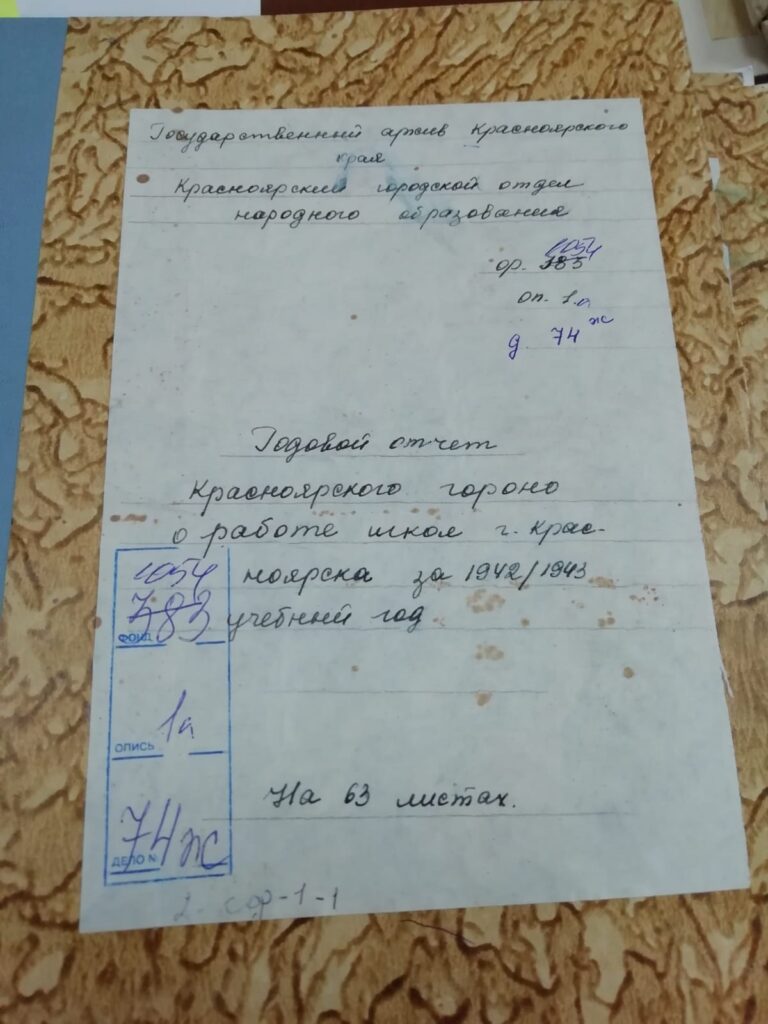 Государственный архив Красноярского
края
Красноярский городской отдел
народного образования
1054
ф. 383
оп. 1.а
д. 74 ж
Годовой отчет
Красноярского гороно
о работе школ г. Крас-
ноярска за 1942/1943
учебный год
1054
383
ФОНД
1а
ОПИСЬ
74ж
ДЕЛО №
На 63 листах.